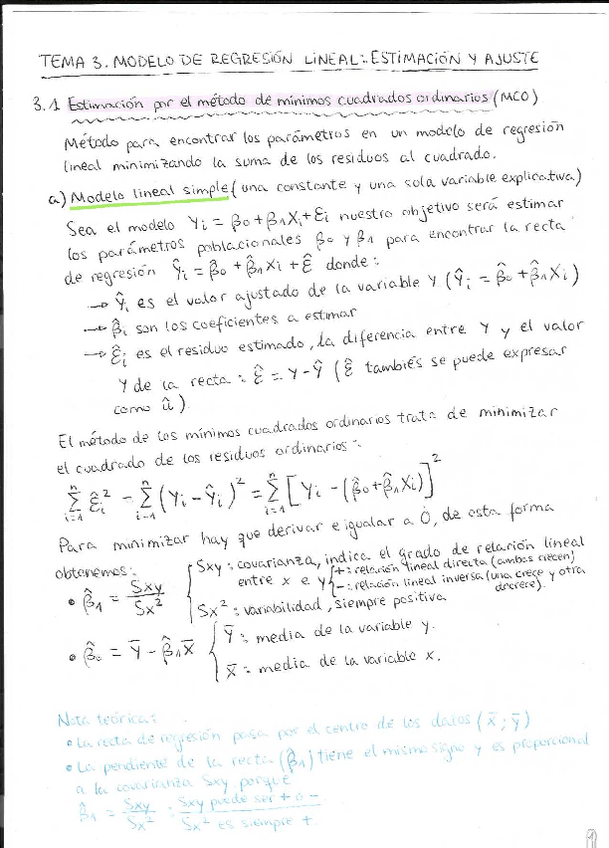 TEMA 3. MODELO DE REGRESIÓN LINEAL: ESTIMACIÓN Y AJUSTE
3.1 Estimación por el método de mínimos cuadrados ordinarios (MCO)
Método para encontrar los parámetros en un modelo de regresión
lineal minimizando la suma de los residuos al cuadrado.
a) Modelo lineal simple (una constante y una sola variable explicativa)
Sea el modelo Yi = β0 + β1Xi + Ei nuestro objetivo será estimar
los parámetros poblacionales β0 y β1 para encontrar la recta
de regresión Ŷi = β̂0 + β̂1Xi + Ê donde:
→ Ŷi es el valor ajustado de la variable Y (Ŷi = β̂0 + β̂1Xi)
→ β̂i son los coeficientes a estimar
→ Ê i es el residuo estimado, la diferencia entre Y y el valor
Y de la recta: Ê = Y - Ŷ (Ê también se puede expresar
como û).
El método de los mínimos cuadrados ordinarios trata de minimizar
el cuadrado de los residuos ordinarios:
n∑i=1 Êi² - n∑i=1 (Yi - Ŷi)² = n∑i=1 [Yi - (β̂0 + β̂1Xi)]²
Para minimizar hay que derivar e igualar a 0, de esta forma
obtenemos:
• β̂1 = Sxy / Sx² { Sxy: covarianza, indica el grado de relación lineal
entre x e y { +: relación lineal directa (ambas crecen)
-: relación lineal inversa (una crece y otra
decrece).
Sx²: variabilidad, siempre positiva
• β̂0 = Ȳ - β̂1X̄ { Ȳ: media de la variable y.
X̄: media de la variable x.
Nota teórica:
• La recta de regresión pasa por el centro de los datos (x̄; ȳ)
• La pendiente de la recta (β̂1) tiene el mismo signo y es proporcional
a la covarianza Sxy porque
β̂1 = Sxy / Sx² : Sxy puede ser + o - / Sx² es siempre +.
1